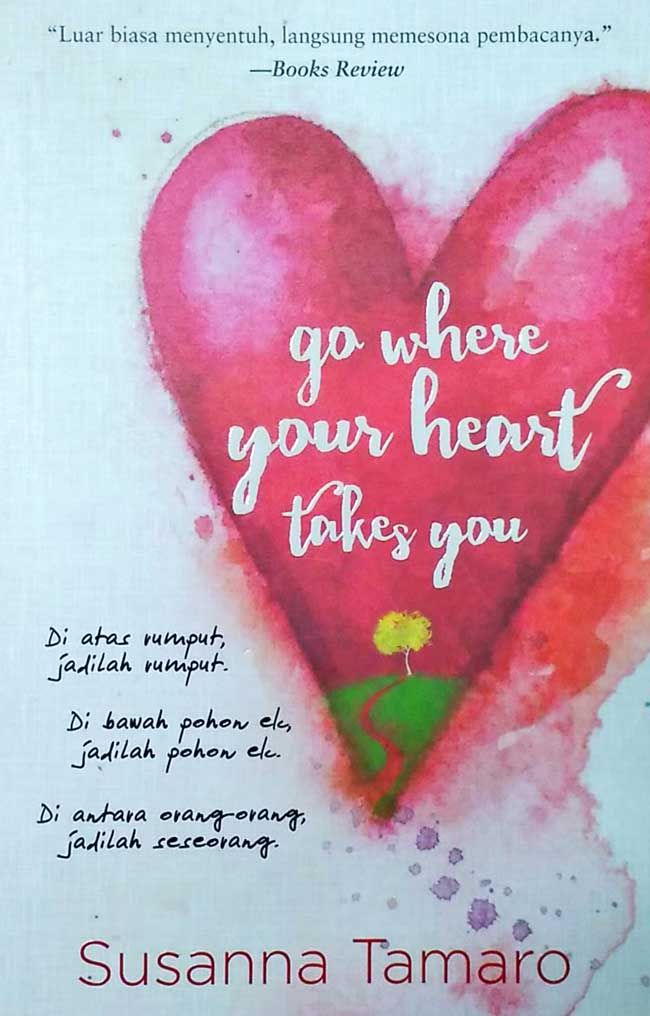 “Luar biasa menyentuh, langsung memesona pembacanya.”
—Books Review
go where
your heart
takes you
Di atas rumput,
jadilah rumput.
Di bawah pohon ek,
jadilah pohon ek.
Di antara orang-orang,
jadilah seseorang.
Susanna Tamaro